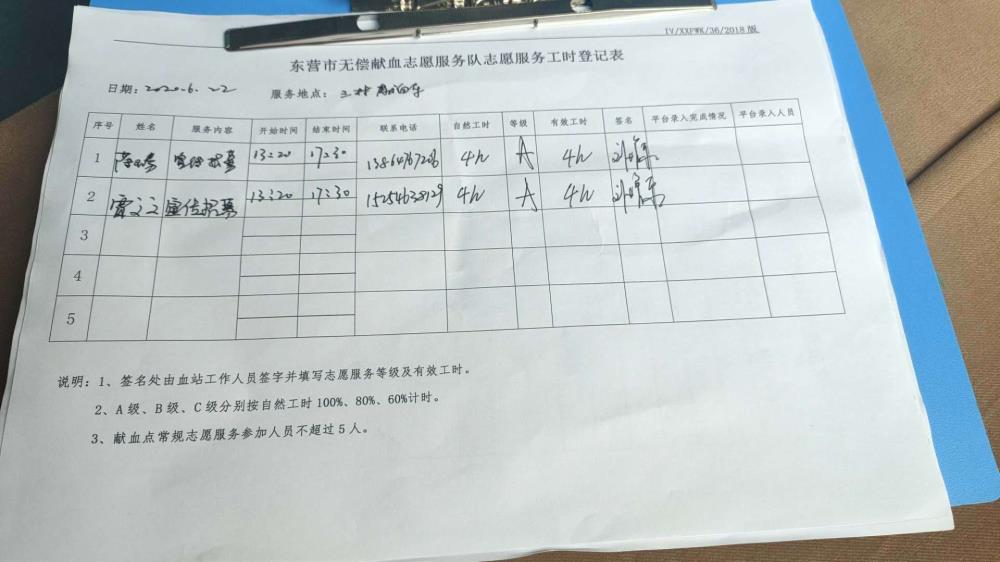 IV/XXFWK/36/2018版
东营市无偿献血志愿服务队志愿服务工时登记表
日期：2020.6.22 服务地点：
序号 姓名 服务内容 开始时间 结束时间 联系电话 自然工时 等级 有效工时 签名 平台录入完成情况 平台录入人员
1 宣传招募 13:20 17:30 4h A 4h
2 雷文文 宣传招募 13:20 17:30 15254638129 4h A 4h
3
4
5
说明：1、签名处由血站工作人员签字并填写志愿服务等级及有效工时。
2、A级、B级、C级分别按自然工时100%、80%、60%计时。
3、献血点常规志愿服务参加人员不超过5人。